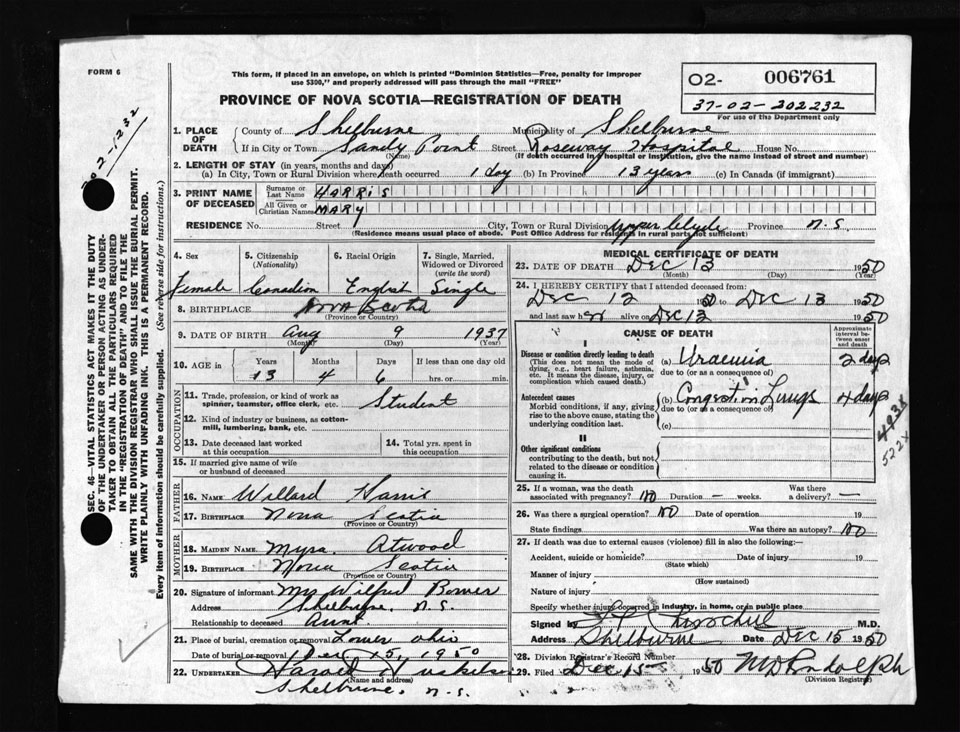 FORM 6
This form, if placed in an envelope, on which is printed "Dominion Statistics—Free, penalty for improper
use $300," and properly addressed will pass through the mail "FREE"
02- 006761
37-02-202232
For use of the Department only
PROVINCE OF NOVA SCOTIA—REGISTRATION OF DEATH
1. PLACE OF DEATH
County of Shelburne Municipality of Shelburne
If in City or Town Sandy Point Street Roseway Hospital House No.
(Name) (If death occurred in hospital or institution, give the name instead of street and number)
2. LENGTH OF STAY (in years, months and days)
(a) In City, Town or Rural Division where death occurred 1 day (b) In Province 13 years (c) In Canada (if immigrant)
3. PRINT NAME OF DECEASED
Surname or Last Name HARRIS
All Given or Christian Names MARY
RESIDENCE No. Street City, Town or Rural Division Upper Clyde Province N.S.
(Residence means usual place of abode. Post Office Address for residents in rural parts not sufficient)
4. Sex 5. Citizenship (Nationality) 6. Racial Origin 7. Single, Married, Widowed or Divorced (write the word)
Female Canadian English Single
8. BIRTHPLACE Nova Scotia
(Province or Country)
9. DATE OF BIRTH Aug 9 1937
(Month) (Day)
10. AGE in Years Months Days If less than one day old
13 4 6 hrs. or min.
OCCUPATION
11. Trade, profession, or kind of work as spinner, teamster, office clerk, etc. Student
12. Kind of industry or business, as cotton-mill, lumbering, bank, etc.
13. Date deceased last worked at this occupation 14. Total yrs. spent in this occupation
15. If married give name of wife or husband of deceased
FATHER
16. NAME Willard Harris
17. BIRTHPLACE Nova Scotia
(Province or Country)
MOTHER
18. MAIDEN NAME Myra Atwood
19. BIRTHPLACE Nova Scotia
(Province or Country)
20. Signature of informant Mrs Wilfred Bower
Address Shelburne, N.S.
Relationship to deceased Aunt.
21. Place of burial, cremation or removal Lower Ohio
Date of burial or removal Dec 15, 1950
22. UNDERTAKER Harold
(Name and address)
Shelburne, N.S.
MEDICAL CERTIFICATE OF DEATH
23. DATE OF DEATH Dec 13 1950
(Month) (Day)
24. I HEREBY CERTIFY that I attended deceased from:
Dec 12 1950 to Dec 13 1950
and last saw her alive on Dec 12 1950
CAUSE OF DEATH Approximate interval between onset and death
I
Disease or condition directly leading to death
(This does not mean the mode of dying, e.g., heart failure, asthenia, etc. It means the disease, injury, or complication which caused death.)
(a) Uraemia 2 days
due to (or as a consequence of)
Antecedent causes
Morbid conditions, if any, giving rise to the above cause, stating the underlying condition last.
(b) Congestion Lungs 4 days
due to (or as a consequence of)
(c)
493X
522X
II
Other significant conditions
contributing to the death, but not related to the disease or condition causing it.
25. If a woman, was the death associated with pregnancy? No Duration — weeks. Was there a delivery? —
26. Was there a surgical operation? No Date of operation 19
State findings Was there an autopsy? No
27. If death was due to external causes (violence) fill in also the following:—
Accident, suicide or homicide? Date of injury 19
(State which)
Manner of injury
(How sustained)
Nature of injury
Specify whether injury occurred in industry, in home, or in public place
Signed by M.D.
Address Shelburne Date Dec 15 1950
28. Division Registrar's Record Number
29. Filed Dec 15 1950
(Division Registrar)
SEC. 46—VITAL STATISTICS ACT MAKES IT THE DUTY
OF THE UNDERTAKER OR PERSON ACTING AS UNDER-
TAKER TO OBTAIN ALL THE PARTICULARS REQUIRED
IN THE "REGISTRATION OF DEATH" AND TO FILE THE
SAME WITH THE DIVISION REGISTRAR WHO SHALL ISSUE THE BURIAL PERMIT.
WRITE PLAINLY WITH UNFADING INK. THIS IS A PERMANENT RECORD.
Every item of information should be carefully supplied. (See reverse side for instructions.)